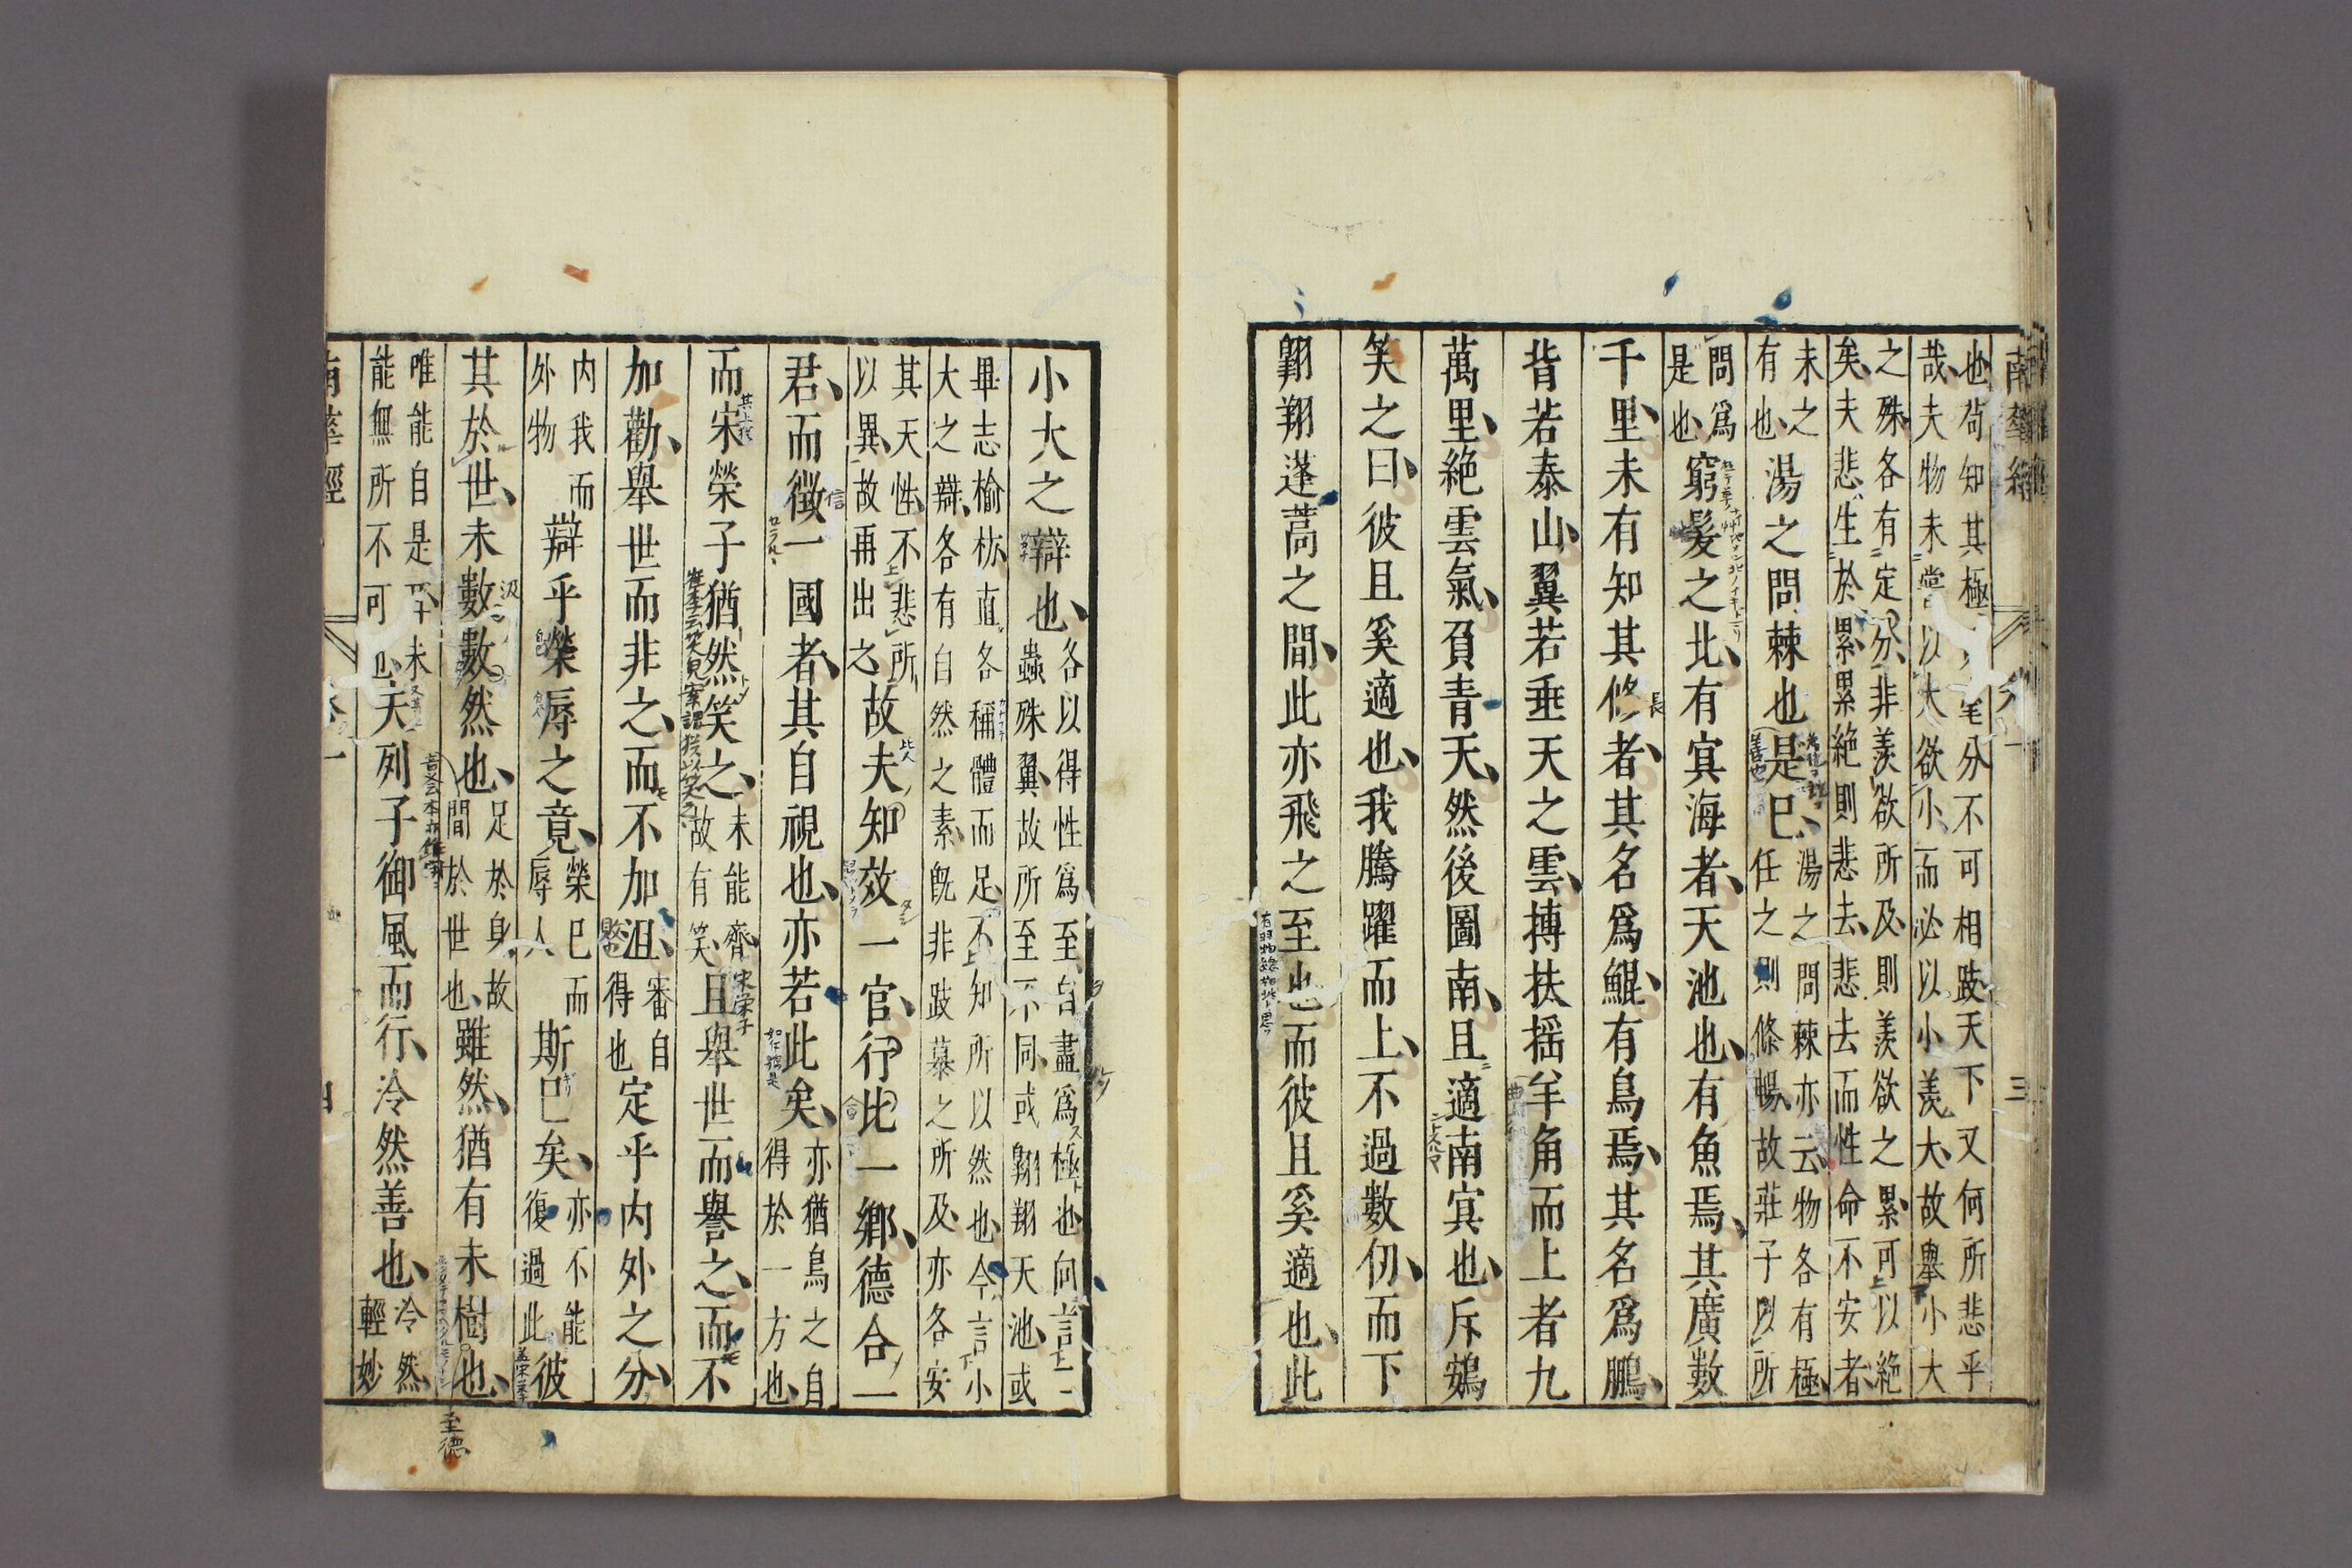 南華經
三
也苟知其極
毫分不可相跂天下又何所悲乎
哉夫物未嘗以大欲小而必以小羨大故擧小大
之殊各有定分非羨欲所及則羨欲之累可以絶
矣夫悲生於累累絶則悲去悲去而性命不安者
未之
有也
湯之問棘也是已
湯之問棘亦云物各有極
任之則條暢故莊子以所
問爲
是也
窮髮之北有冥海者天池也有魚焉其廣數
千里未有知其修者其名爲鯤有鳥焉其名爲鵬
背若泰山翼若垂天之雲摶扶揺羊角而上者九
萬里絶雲氣負青天然後圖南且適南冥也斥鴳
笑之曰彼且奚適也我騰躍而上不過數仞而下
翺翔蓬蒿之間此亦飛之至也而彼且奚適也此
小大之辯也
各以得性爲至自盡爲極也向言二
蟲殊翼故所至不同或翺翔天池或
畢志楡枋直各稱體而足不知所以然也今言小
大之辯各有自然之素旣非跂慕之所及亦各安
其天性不悲所
以異故再出之
故夫知效一官行比一鄕德合一
君而徴一國者其自視也亦若此矣
亦猶鳥之自
得於一方也
而宋榮子猶然笑之
未能齊
故有笑
且擧世而譽之而不
加勸擧世而非之而不加沮
審自
得也
定乎内外之分
内我而
外物
辯乎榮辱之竟
榮己而
辱人
斯已矣
亦不能
復過此
彼
其於世未數數然也
足於身故
間於世也
雖然猶有未樹也
唯能自是耳未
能無所不可也
夫列子御風而行冷然善也
冷然
輕妙
至德
南華經
四